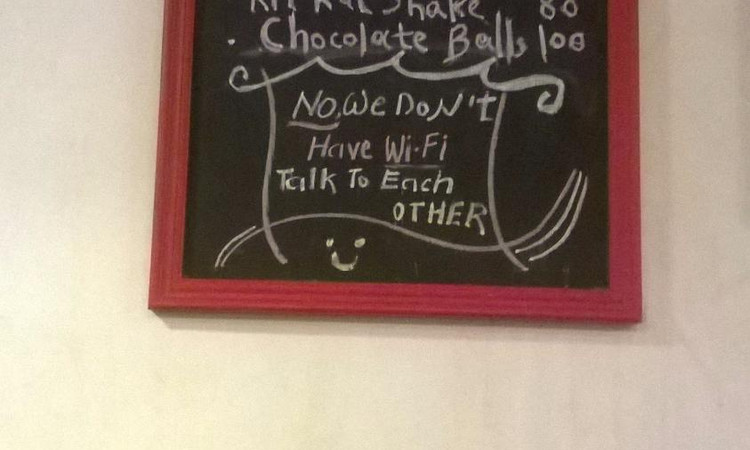 Kit Kat Shake 80
. Chocolate Balls 100
No, We DoN't
Have Wi-Fi
Talk To Each
OTHER